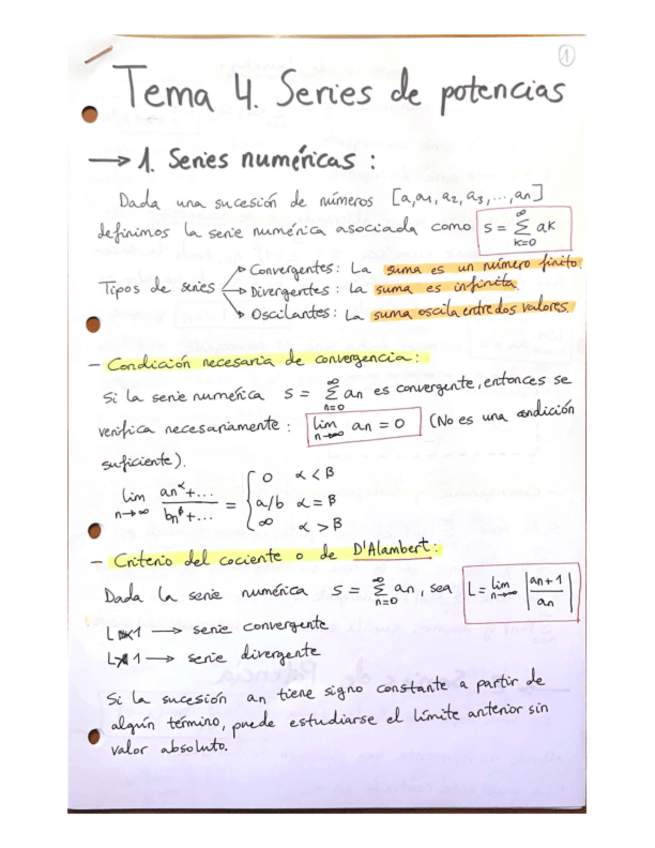 1
Tema 4. Series de potencias
→ 1. Series numéricas :
Dada una sucesión de números [a, a₁, a₂, a₃, ..., an]
definimos la serie numérica asociada como S = ∑_{k=0}^{∞} ak
Tipos de series
Convergentes: La suma es un número finito.
Divergentes: La suma es infinita.
Oscilantes: La suma oscila entre dos valores.
- Condición necesaria de convergencia:
Si la serie numérica S = ∑_{n=0}^{∞} an es convergente, entonces se
verifica necesariamente : lim_{n→∞} an = 0 (No es una condición
suficiente).
lim_{n→∞} (an^α + ...)/(bn^β + ...) = { 0 α < β
a/b α = β
∞ α > β
- Criterio del cociente o de D'Alambert:
Dada la serie numérica S = ∑_{n=0}^{∞} an, sea L = lim_{n→∞} |an+1 / an|
L < 1 → serie convergente
L > 1 → serie divergente
Si la sucesión an tiene signo constante a partir de
algún término, puede estudiarse el límite anterior sin
valor absoluto.